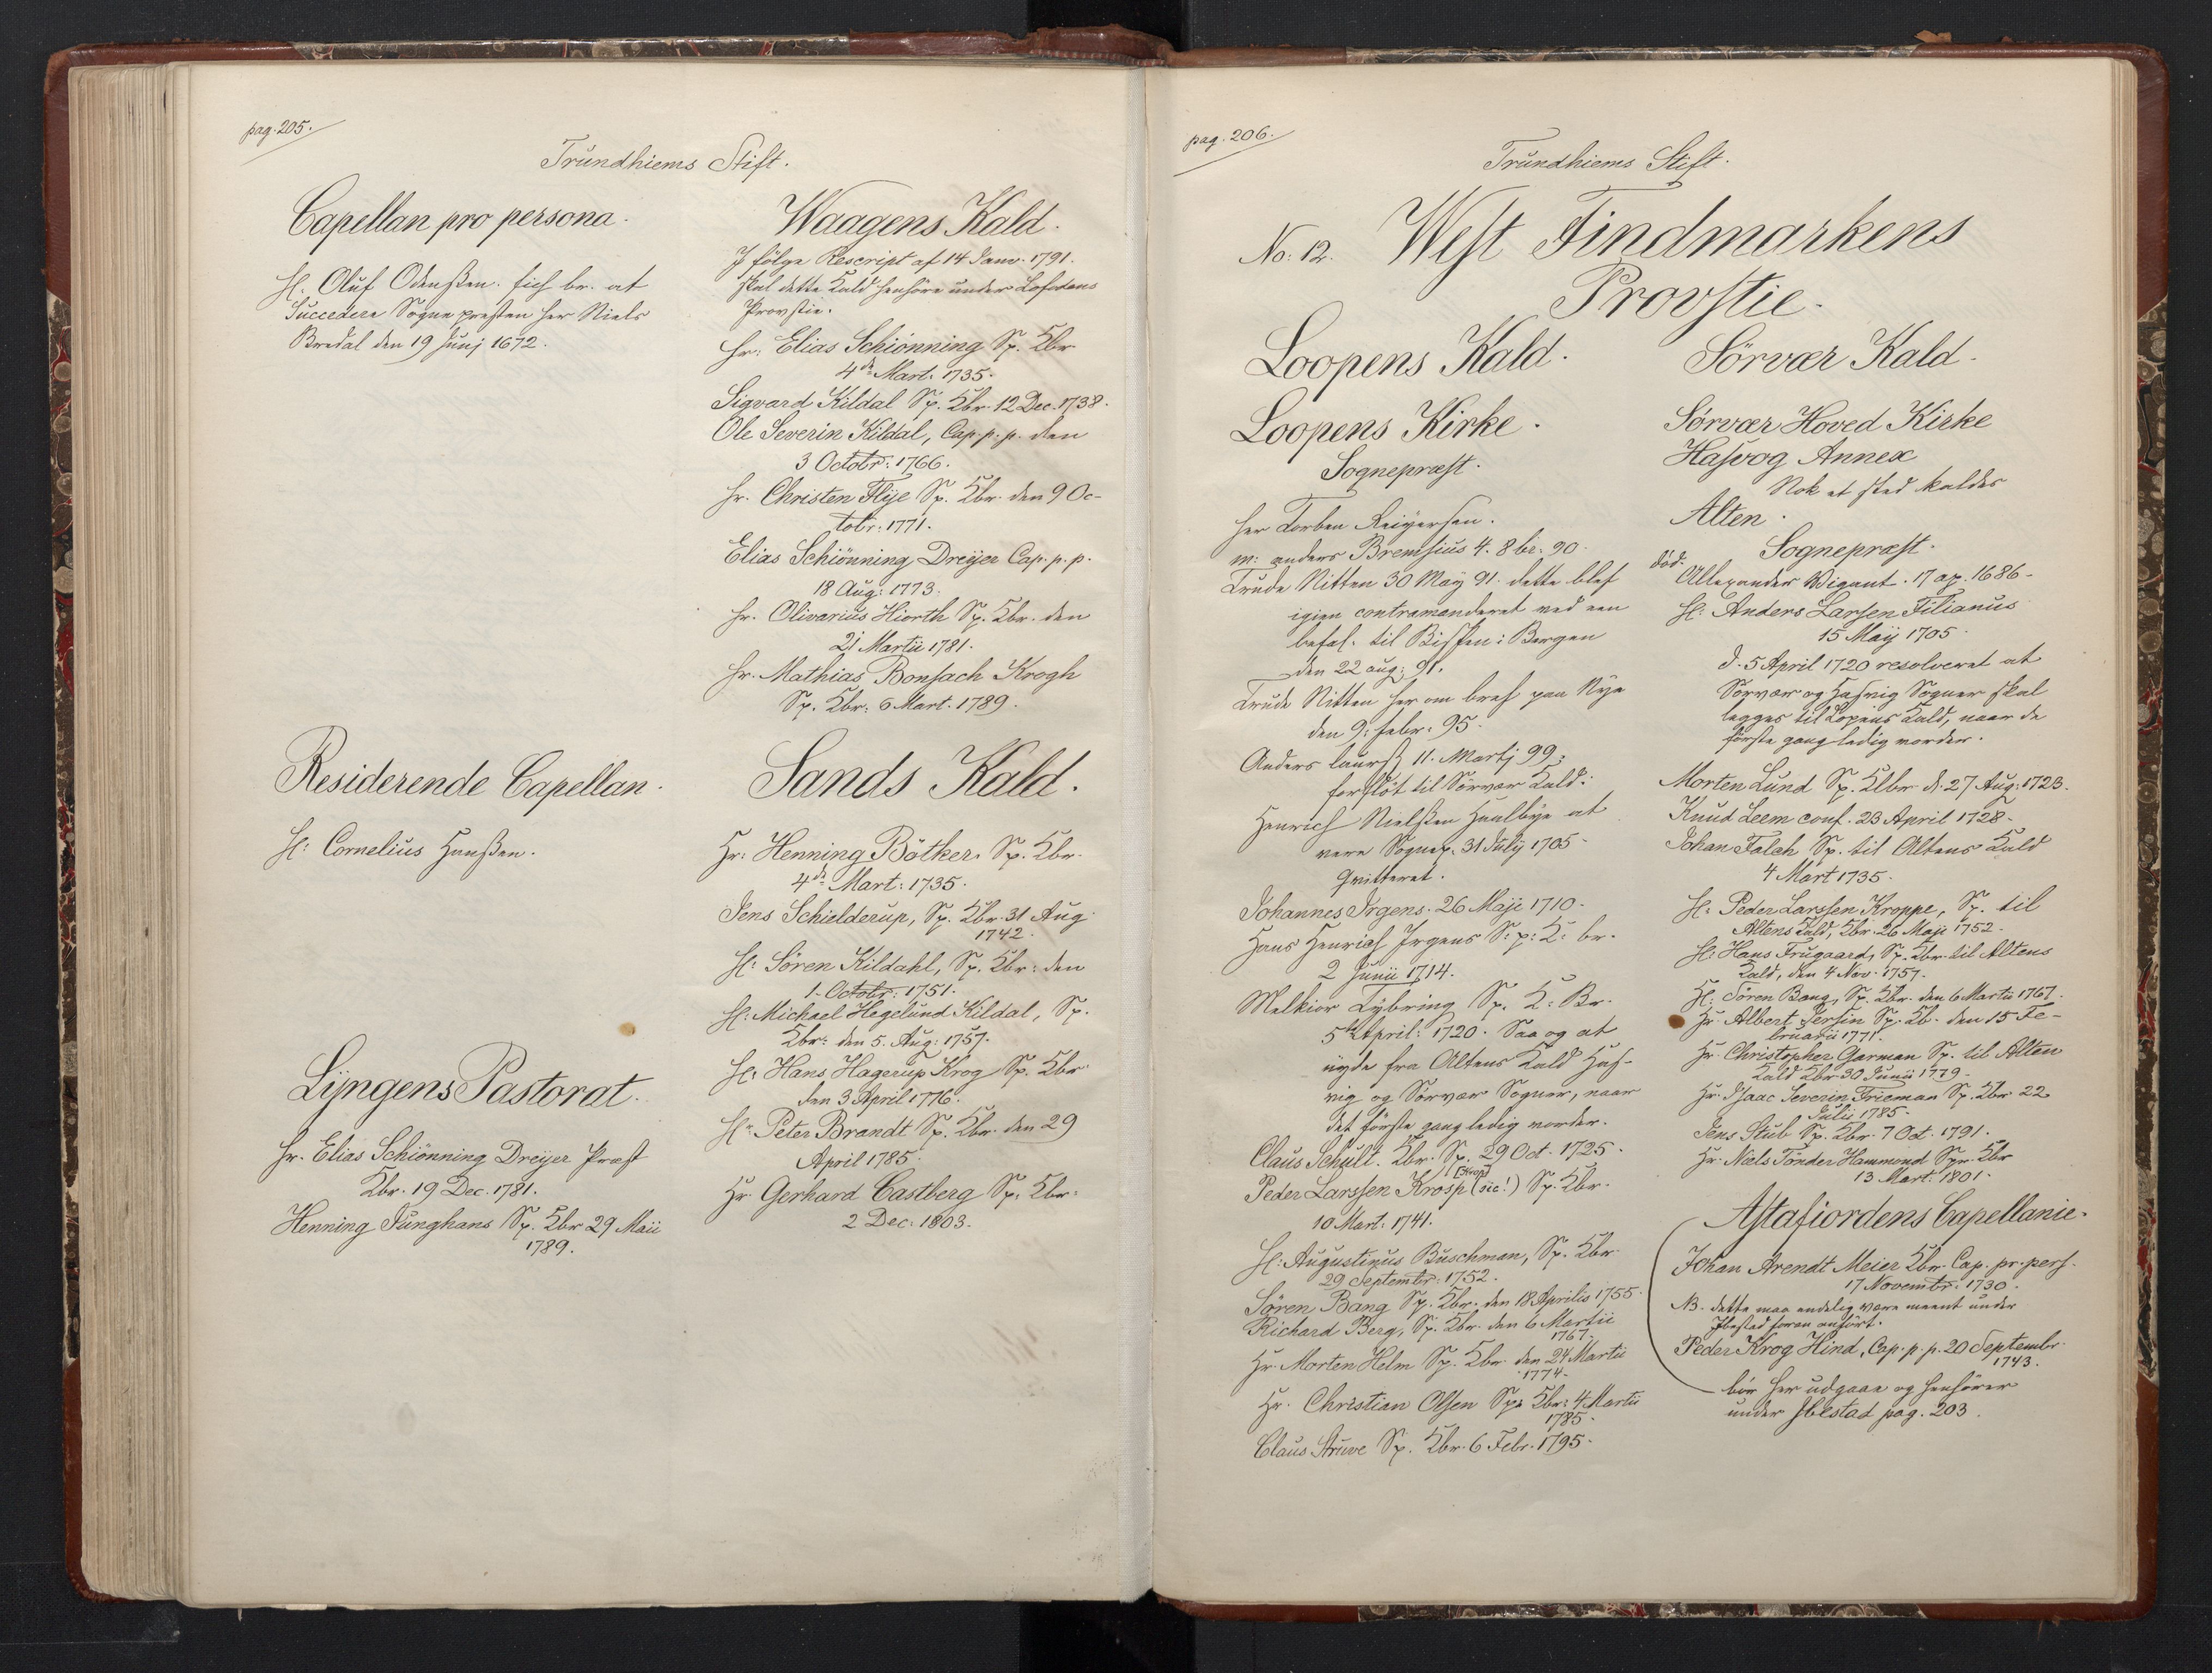 pag. 205.
Trundhiems Stift.
Capellan pro persona.
H. Oluf Odenßen. fich br. at
Succedere Sogne presten her Niels
Bredal den 19 Junj 1672.
Residerende Capellan.
H: Cornelius Hanßen.
Lÿngens Pastorat.
Hr. Elias Schiönning Dreÿer Præst
Kbr. 19 Dec. 1781.
Henning Junghans Sp. Kbr 29 Maii
1789.
Waagens Kald.
I følge Rescript af 14 Janv. 1791.
skal dette Kald henhöre under Lofodens
Provstie.
Hr: Elias Schiønning Sp. Kbr
4de Mart. 1735.
Sigvard Kildal Sp. Kbr. 12 Dec. 1738.
Ole Severin Kildal, Cap. p. p. den
3 Octobr: 1766.
Hr. Christen Flÿe Sp. Kbr. den 9 Oc-
tobr: 1771.
Elias Schiönning Dreÿer Cap. p. p.
18 Aug: 1773.
Hr. Olivarius Hiorth Sp. Kbr. den
21 Martii 1781.
Hr. Mathias Bonsach Krogh
Sp. Kbr: 6 Mart. 1789.
Sands Kald.
Hr: Henning Bötker. Sp. Kbr.
4de Mart: 1735.
Jens Schielderup, Sp. Kbr. 31 Aug.
1742.
H: Søren Kildahl, Sp. Kbr: den
1. Octobr: 1751.
H: Michael Hegelund Kildal, Sp.
Kbr: den 5. Aug: 1757.
H: Hans Hagerup Krog Sp. Kbr
den 3 April 1776.
Hr Peter Brandt Sp. Kbr. den 29
April 1785.
Hr. Gerhard Castberg Sp. Kbr:
2 Dec: 1803.
pag. 206.
Trundhiems Stift.
No: 12. West Findmarkens
Provstie.
Loopens Kald.
Loopens Kirke.
Sognepræst.
Her Torben Reiÿersen.
m: anders Bremsius 4. 8br. 90.
Trude Nitten 30 Maÿ 91. dette blef
igien contramanderet ved een
befal. til Bispen i Bergen
den 22 aug: 91.
Trude Nitten her om bref paa Nÿe
den 9: febr: 95.
Anders laurß 11. Martj 99.
forflöt til Sörvær Kald.
Henrich Nielsen at
være Sognep. 31 Julÿ 1705
Qvitteret.
Johannes Irgens. 26 Maje 1710.
Hans Henrich Irgens S: p: K: br.
2 Junii 1714.
Melkior Tÿbring Sp. K: Br.
5te April: 1720. Saa og at
nÿde fra Altens Kald Has-
vig og Sörvær Sogner, naar
det förste gang ledig vorder.
Claus Schult. Kbr. Sp. 29 Oct. 1725.
(Krop)
Peder Larssen Krosp (sic!) Sp. Kbr.
10 Mart: 1741.
H: Augustinus Buschman, Sp. Kbr.
29 Septembr: 1752.
Sören Bang Sp. Kbr. den 18 Aprilis 1755.
Richard Berg, Sp. Kbr. den 6 Martii
1767.
Hr. Morten Helm Sp. Kbr. den 24 Martii
1774.
Hr. Christian Olsen Sp. Kbr: 4 Martii
1785.
Claus Struve Sp. Kbr. 6 Febr. 1795.
Sörvær Kald.
Sørvær Hoved Kirke
Hasvog Annex
Nok et sted kaldes
Alten.
Sognepræst.
död.
Allexander Wigant. 17 ap. 1686.
H: Anders Larsen Filianus
15 Maÿ 1705.
d. 5 April 1720 resolveret at
Sørvær og Hasvig Sogner skal
legges til Lopens Kald, naar de
förste gang ledig vorder.
Morten Lund Sp. Klbr. d: 27 Aug: 1723.
Knud Leem conf. 23 April 1728.
Johan Falch Sp. til Altens Kald
4 Mart 1735.
H: Peder Larssen Kroppe, Sp. til
Altens Kald, Kbr. 26 Maji 1752.
H: Hans Frugaard, Sp. Kbr. til Altens
Kald, den 4 Nov. 1757.
H: Sören Bang, Sp. Kbr. den 6 Martii 1767.
Hr. Albert Jersin Sp. Kb. den 15 Fe-
bruarii 1771.
Hr. Christopher Garman Sp. til Alten
Kald Kbr 30 Junii 1779.
Hr. Isaac Severin Frieman Sp. Kbr 22
Julii 1785.
Jens Stub Sp. Kbr. 7 Oct. 1791.
Hr. Niels Tönder Hammond Spr. Kbr
13 Mart: 1801.
Astafiordens Capellanie.
Johan Arendt Meier Kbr. Cap. pr. pers.
17 Novembr: 1730.
NB. dette maa endelig være meent under
Ibested foran anført.
Peder Krog Hind, Cap. p. p. 20 Septembr.
1743.
bör her udgaae og henhörer
under Ibestad pag. 203.